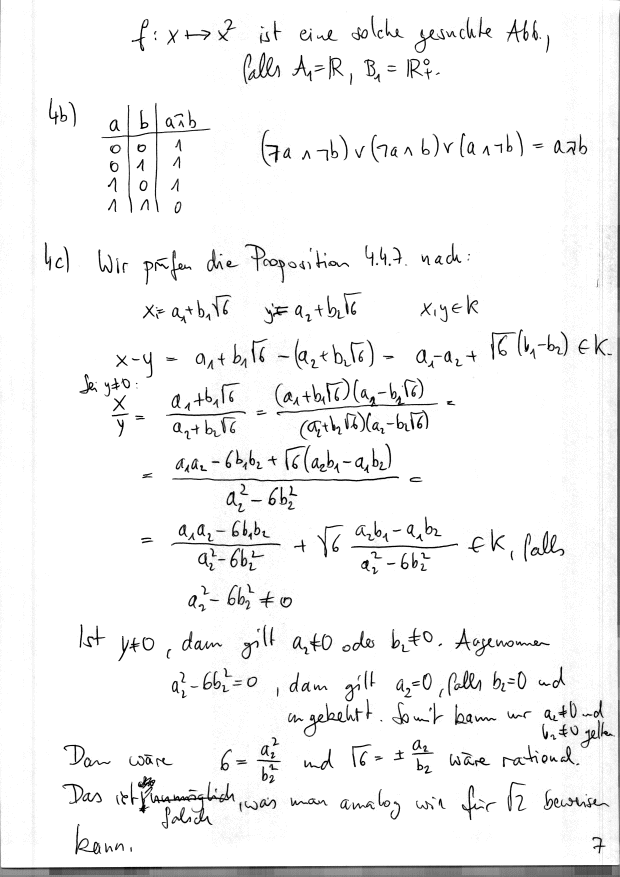 f: x ↦ x² ist eine solche gesuchte Abb.,
falls A₁ = ℝ, B₁ = ℝ₊⁰.
4b)
a | b | a⊼b
0 | 0 | 1
0 | 1 | 1
1 | 0 | 1
1 | 1 | 0
(¬a ∧ ¬b) ∨ (¬a ∧ b) ∨ (a ∧ ¬b) = a⊼b
4c) Wir prüfen die Proposition 4.4.7. nach:
x = a₁+b₁√6 y = a₂+b₂√6 x,y ∈ K
x-y = a₁+b₁√6 - (a₂+b₂√6) = a₁-a₂ + √6(b₁-b₂) ∈ K.
Sei y≠0:
x/y = (a₁+b₁√6)/(a₂+b₂√6) = (a₁+b₁√6)(a₂-b₂√6)/((a₂+b₂√6)(a₂-b₂√6)) =
= (a₁a₂ - 6b₁b₂ + √6(a₂b₁-a₁b₂))/(a₂²-6b₂²) =
= (a₁a₂-6b₁b₂)/(a₂²-6b₂²) + √6 (a₂b₁-a₁b₂)/(a₂²-6b₂²) ∈ K, falls
a₂²-6b₂² ≠ 0
Ist y≠0, dann gilt a₂≠0 oder b₂≠0. Angenommen
a₂²-6b₂²=0, dann gilt a₂=0, falls b₂=0 und
umgekehrt. Somit kann nur a₂≠0 und
b₂≠0 gelten
Dann wäre 6 = a₂²/b₂² und √6 = ± a₂/b₂ wäre rational.
Das ist falsch, was man analog wie für √2 beweisen
kann.
7